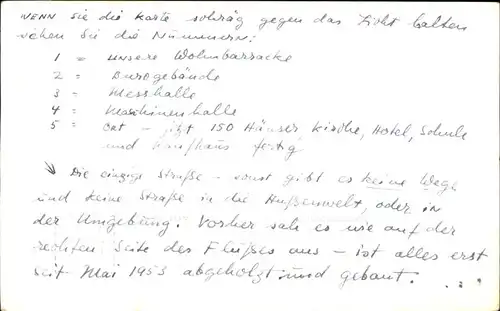 WENN sie die Karte schräg gegen das Licht halten
sehen Sie die Nummern:
1 = unsere Wohnbarracke
2 = Bürogebäude
3 = Messhalle
4 = Maschinenhalle
5 = Ort – jetzt 150 Häuser Kirche, Hotel, Schule
und Kaufhaus fertig
↓ Die einzige Straße – sonst gibt es keine Wege
und keine Straße in die Außenwelt, oder in
der Umgebung. Vorher sah es wie auf der
rechten Seite des Flußes aus – ist alles erst
seit Mai 1953 abgeholzt und gebaut.